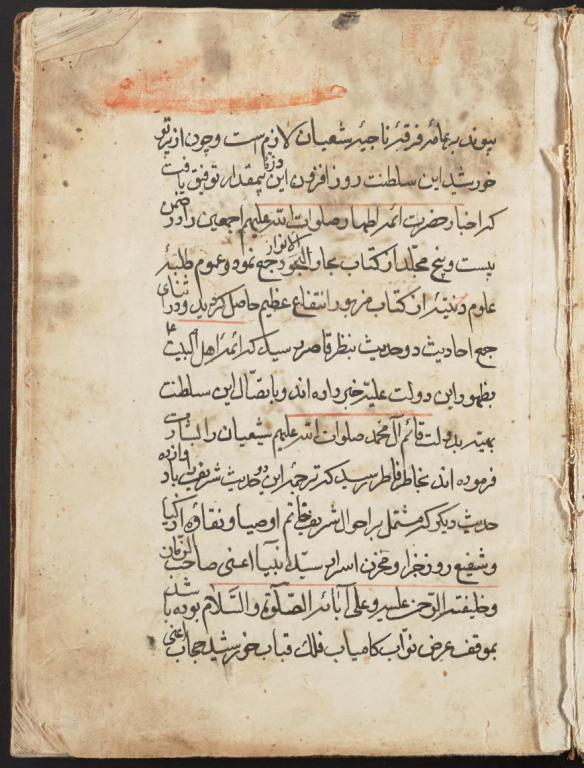 پیوند بر همائر فرقۀ ناجیۀ شیعیان لازم است و چون از پرتو
خورشید این سلطنت روز افزون این ذرۀ بیمقدار توفیق یافت
که اخبار حضرت ائمۀ اطهار صلوات الله علیهم اجمعین را در ضمن
بیست و پنج مجلد از کتاب بحار الانوار جمع نمود و عموم طلبۀ
علوم دینیه از کتاب مزبور انتفاع عظیم حاصل کردید و در اثنای
جمع احادیث دو حدیث بنظر قاصر رسید که ائمۀ اهل البیت ع
بظهور این دولت علیه خبر داده اند و باتصال این سلطنت
بهیه بدولت قائم آل محمد صلوات الله علیهم شیعیان را بشارت
فرموده اند بخاطر فاطر رسید که ترجمۀ این دو حدیث شریف با دوازده
حدیث دیکر که مشتمل بر احوال شریف خاتم اوصیا و نقاوۀ اذکیا
و شفیع روز جزا و مخزن اسرار سید انبیا اعنی صاحب الزمان
و خلیفة الرحمن علیه و علی آبائه الصلوة و السلام بوده باشد
بموقف عرض نواب کامیاب فلک قباب خورشید حجاب اعنی